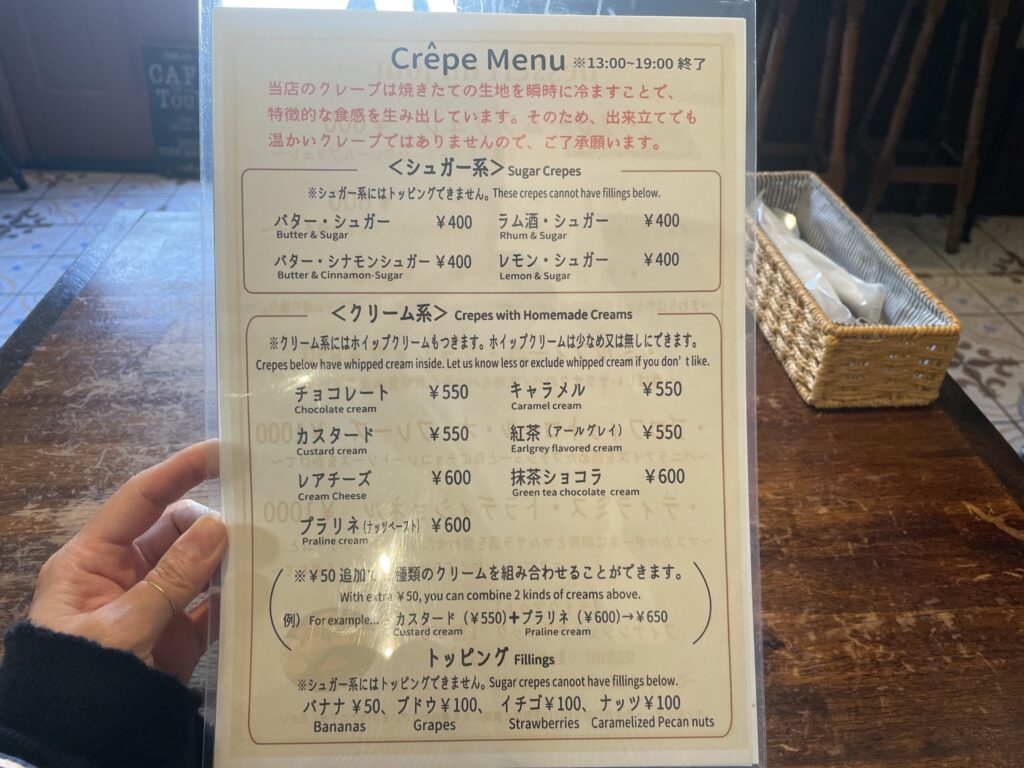 CAF
TOU
Crêpe Menu ※13:00~19:00 終了
当店のクレープは焼きたての生地を瞬時に冷ますことで、
特徴的な食感を生み出しています。そのため、出来立てでも
温かいクレープではありませんので、ご了承願います。
＜シュガー系＞ Sugar Crepes
※シュガー系にはトッピングできません。These crepes cannot have fillings below.
バター・シュガー ￥400 ラム酒・シュガー ￥400
Butter & Sugar Rhum & Sugar
バター・シナモンシュガー ￥400 レモン・シュガー ￥400
Butter & Cinnamon-Sugar Lemon & Sugar
＜クリーム系＞ Crepes with Homemade Creams
※クリーム系にはホイップクリームもつきます。ホイップクリームは少なめ又は無しにできます。
Crepes below have whipped cream inside. Let us know less or exclude whipped cream if you don't like.
チョコレート ￥550 キャラメル ￥550
Chocolate cream Caramel cream
カスタード ￥550 紅茶（アールグレイ） ￥550
Custard cream Earlgrey flavored cream
レアチーズ ￥600 抹茶ショコラ ￥600
Cream Cheese Green tea chocolate cream
プラリネ（ナッツペースト） ￥600
Praline cream
※￥50 追加で 種類のクリームを組み合わせることができます。
With extra ￥50, you can combine 2 kinds of creams above.
例） For example... カスタード（￥550）＋プラリネ（￥600）→￥650
Custard cream Praline cream
トッピング Fillings
※シュガー系にはトッピングできません。Sugar crepes canoot have fillings below.
バナナ ￥50、ブドウ￥100、イチゴ￥100、ナッツ￥100
Bananas Grapes Strawberries Caramelized Pecan nuts